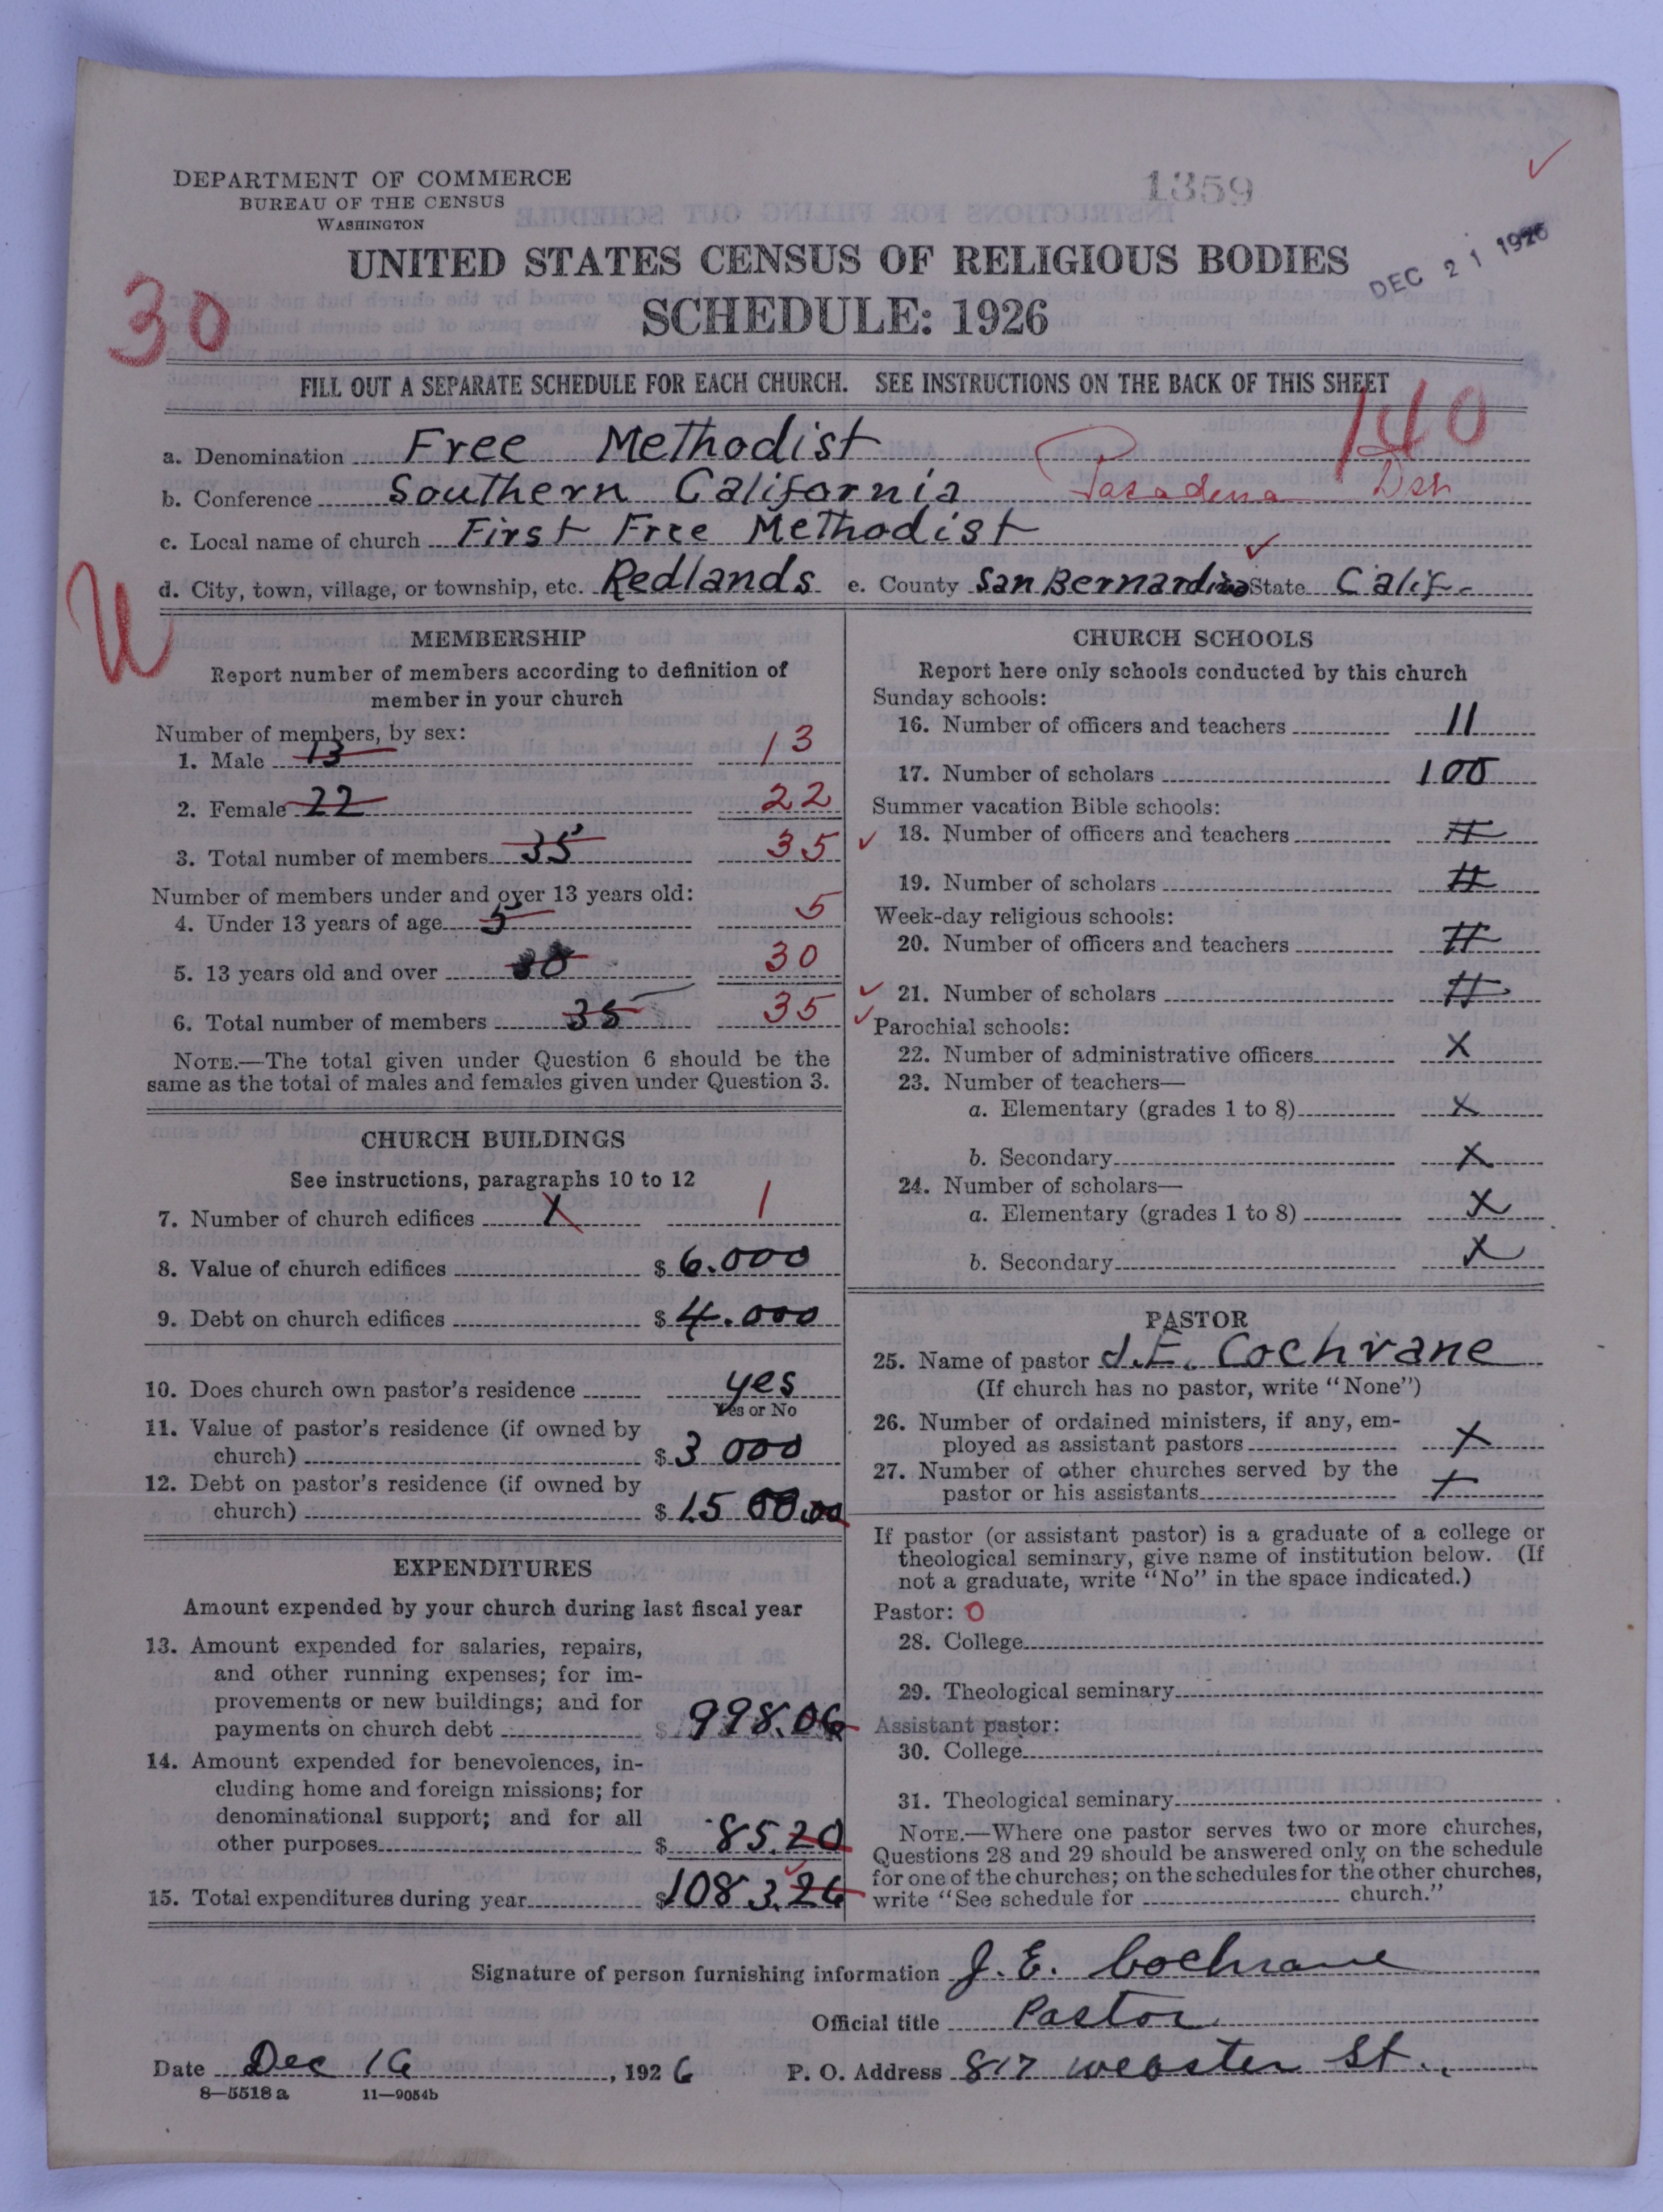 DEPARTMENT OF COMMERCE
BUREAU OF THE CENSUS
WASHINGTON
1359
DEC 21 1926
UNITED STATES CENSUS OF RELIGIOUS BODIES
SCHEDULE: 1926
30
FILL OUT A SEPARATE SCHEDULE FOR EACH CHURCH. SEE INSTRUCTIONS ON THE BACK OF THIS SHEET
140
a. Denomination Free Methodist
b. Conference Southern California Pasadena Dsh
c. Local name of church First Free Methodist
d. City, town, village, or township, etc. Redlands e. County San Bernardino State Calif.
U
MEMBERSHIP
Report number of members according to definition of
member in your church
Number of members, by sex:
1. Male 13 13
2. Female 22 22
3. Total number of members 35 35
Number of members under and over 13 years old:
4. Under 13 years of age 5 5
5. 13 years old and over 30 30
6. Total number of members 35 35
NOTE.—The total given under Question 6 should be the
same as the total of males and females given under Question 3.
CHURCH BUILDINGS
See instructions, paragraphs 10 to 12
7. Number of church edifices X 1
8. Value of church edifices $ 6.000
9. Debt on church edifices $ 4.000
10. Does church own pastor's residence yes
Yes or No
11. Value of pastor's residence (if owned by
church) $ 3 000
12. Debt on pastor's residence (if owned by
church) $ 1.500.00
EXPENDITURES
Amount expended by your church during last fiscal year
13. Amount expended for salaries, repairs,
and other running expenses; for im-
provements or new buildings; and for
payments on church debt $ 998.06
14. Amount expended for benevolences, in-
cluding home and foreign missions; for
denominational support; and for all
other purposes $ 85.20
15. Total expenditures during year $ 1083.26
CHURCH SCHOOLS
Report here only schools conducted by this church
Sunday schools:
16. Number of officers and teachers 11
17. Number of scholars 100
Summer vacation Bible schools:
18. Number of officers and teachers
19. Number of scholars
Week-day religious schools:
20. Number of officers and teachers
21. Number of scholars
Parochial schools:
22. Number of administrative officers X
23. Number of teachers—
a. Elementary (grades 1 to 8) X
b. Secondary X
24. Number of scholars—
a. Elementary (grades 1 to 8) X
b. Secondary X
PASTOR
25. Name of pastor J.E. Cochrane
(If church has no pastor, write "None")
26. Number of ordained ministers, if any, em-
ployed as assistant pastors X
27. Number of other churches served by the
pastor or his assistants X
If pastor (or assistant pastor) is a graduate of a college or
theological seminary, give name of institution below. (If
not a graduate, write "No" in the space indicated.)
Pastor: O
28. College
29. Theological seminary
Assistant pastor:
30. College
31. Theological seminary
NOTE.—Where one pastor serves two or more churches,
Questions 28 and 29 should be answered only on the schedule
for one of the churches; on the schedules for the other churches,
write "See schedule for church."
Signature of person furnishing information J. E. Cochrane
Official title Pastor
Date Dec 16, 1926 P. O. Address 817 Webster St.
8—5518 a 11—9054b